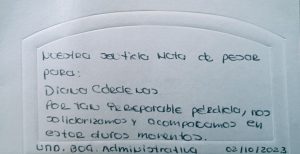 Nuestra sentida Nota de pesar
para:
Diana Cdecenas
Por tan irreparable perdida, nos
solidarizamos y acompañamos en
estos duros momentos.
UND. BOG. Administrativa 02/10/2023